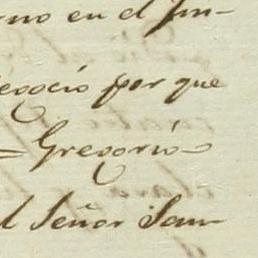 rno en el jui-
egocio por que
- Gregorio -
l Señor San-